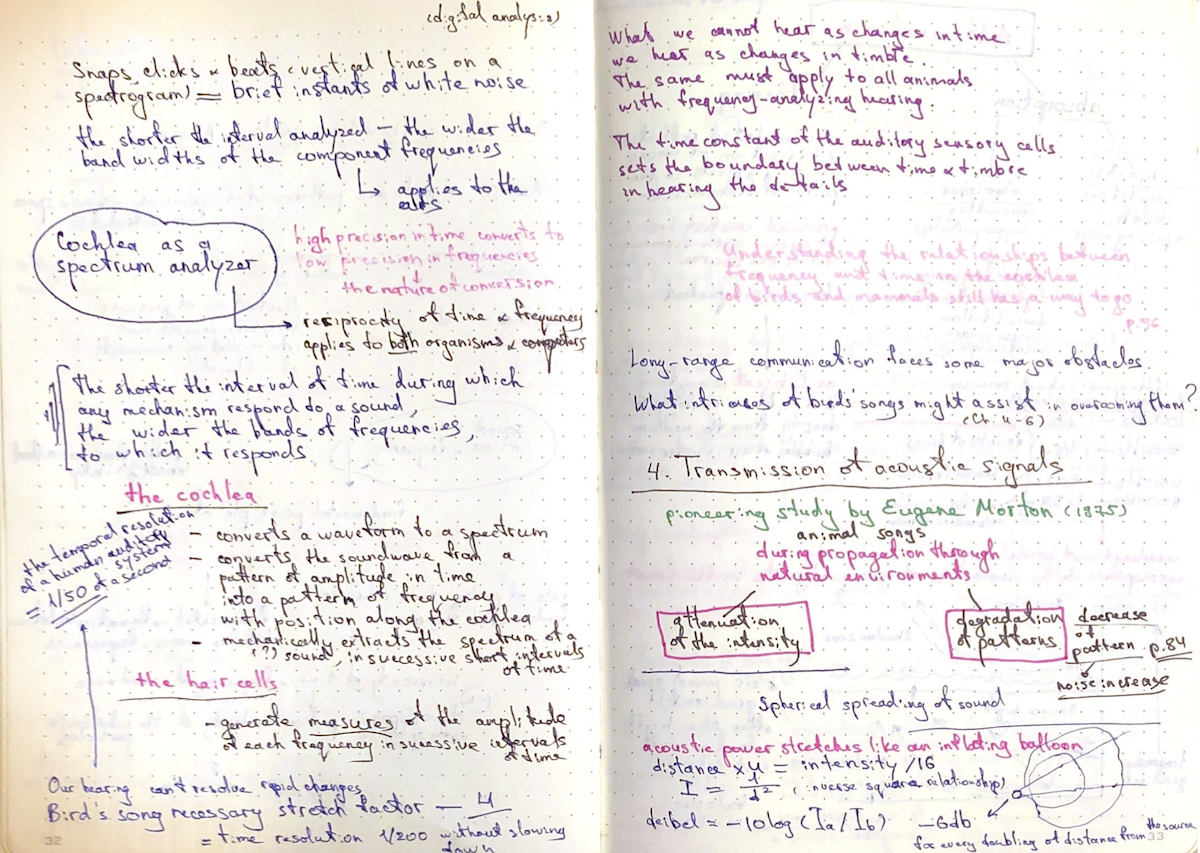 (digital analysis)
Snaps, clicks & beats (vertical lines on a
spectrogram) = brief instants of white noise
the shorter the interval analyzed – the wider the
band widths of the component frequencies
↳ applies to the
ears
Cochlea as a
spectrum analyzer
high precision in time converts to
low precision in frequencies
the nature of conversion.
reciprocity of time & frequency
applies to both organisms & computers
The shorter the interval of time during which
any mechanism respond to a sound,
the wider the bands of frequencies,
to which it responds
the cochlea
the temporal resolution
of a human auditory
system
= 1/50 of a second
- converts a waveform to a spectrum
- converts the soundwave from a
pattern of amplitude in time
into a pattern of frequency
with position along the cochlea
- mechanically extracts the spectrum of a
(?) sound, in successive short intervals
of time
the hair cells
- generate measures of the amplitude
of each frequency in sucessive intervals
of time
Our hearing can't resolve rapid changes
Bird's song necessary stretch factor – 4
= time resolution 1/200 without slowing
down
32
What we cannot hear as changes in time
we hear as changes in timbre.
The same must apply to all animals
with frequency-analyzing hearing.
The time constant of the auditory sensory cells
sets the boundary between time & timbre
in hearing the details
Understanding the relationships between
frequency and time in the cochlea
of birds and mammals still has a way to go.
p.56
Long-range communication faces some major obstacles.
What intricases of birds songs might assist in overcoming them?
(Ch. 4-6)
4. Transmission of acoustic signals
pioneering study by Eugene Morton (1975)
animal songs
during propagation through
natural environments
attenuation
of the intensity
degradation
of patterns
decrease
of
pattern p.84
noise increase
Spherical spreading of sound
acoustic power stretches like an inflating balloon
distance x 4 = intensity /16
I = 1/d² (inverse square relationship)
deibel = -10 log (Ia / Ib) -6db
for every doubling of distance from the source
33